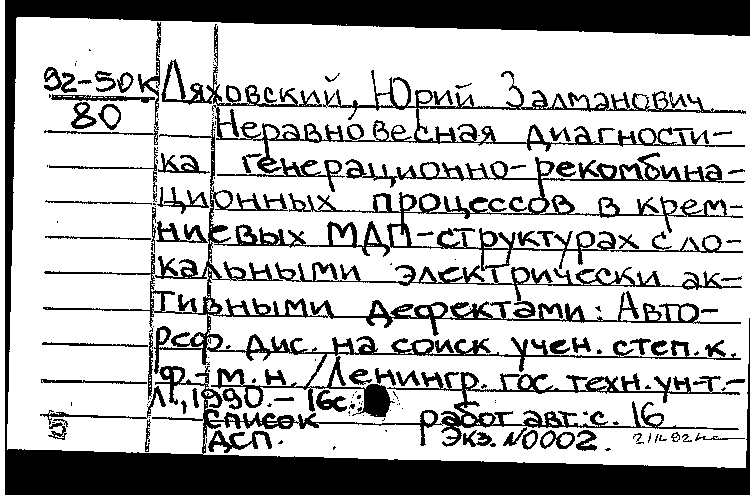 92-50к
80
Ляховский, Юрий Залманович
Неравновесная диагности-
ка генерационно-рекомбина-
ционных процессов в крем-
ниевых МДП-структурах с ло-
кальными электрически ак-
тивными дефектами: Авто-
реф. дис. на соиск. учен. степ. к.
ф.-м.н. / Ленингр. гос. техн. ун-т.-
Л., 1990.- 16с.
Список работ авт.: с. 16
ДСП. Экз. N0002.